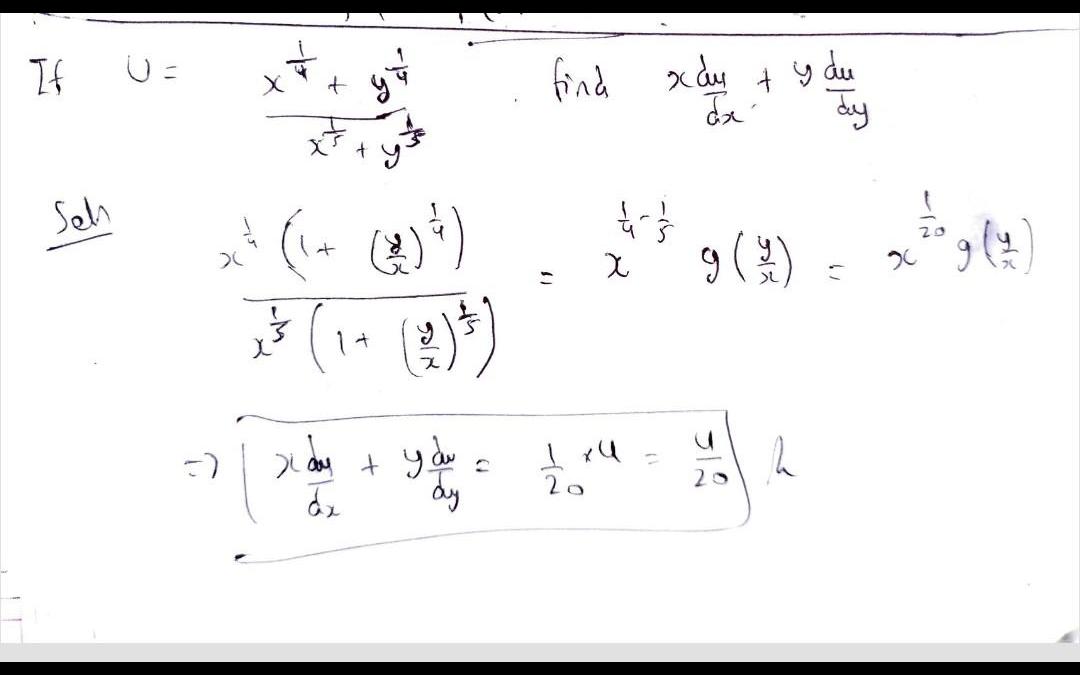 If U = x^{1/4} + y^{1/4} / x^{1/5} + y^{1/5} . find x du/dx + y du/dy
Soln
x^{1/4} (1 + (y/x)^{1/4}) / x^{1/5} (1 + (y/x)^{1/5}) = x^{1/4 - 1/5} g(y/x) = x^{1/20} g(y/x)
=> x du/dx + y du/dy = 1/20 × u = u/20